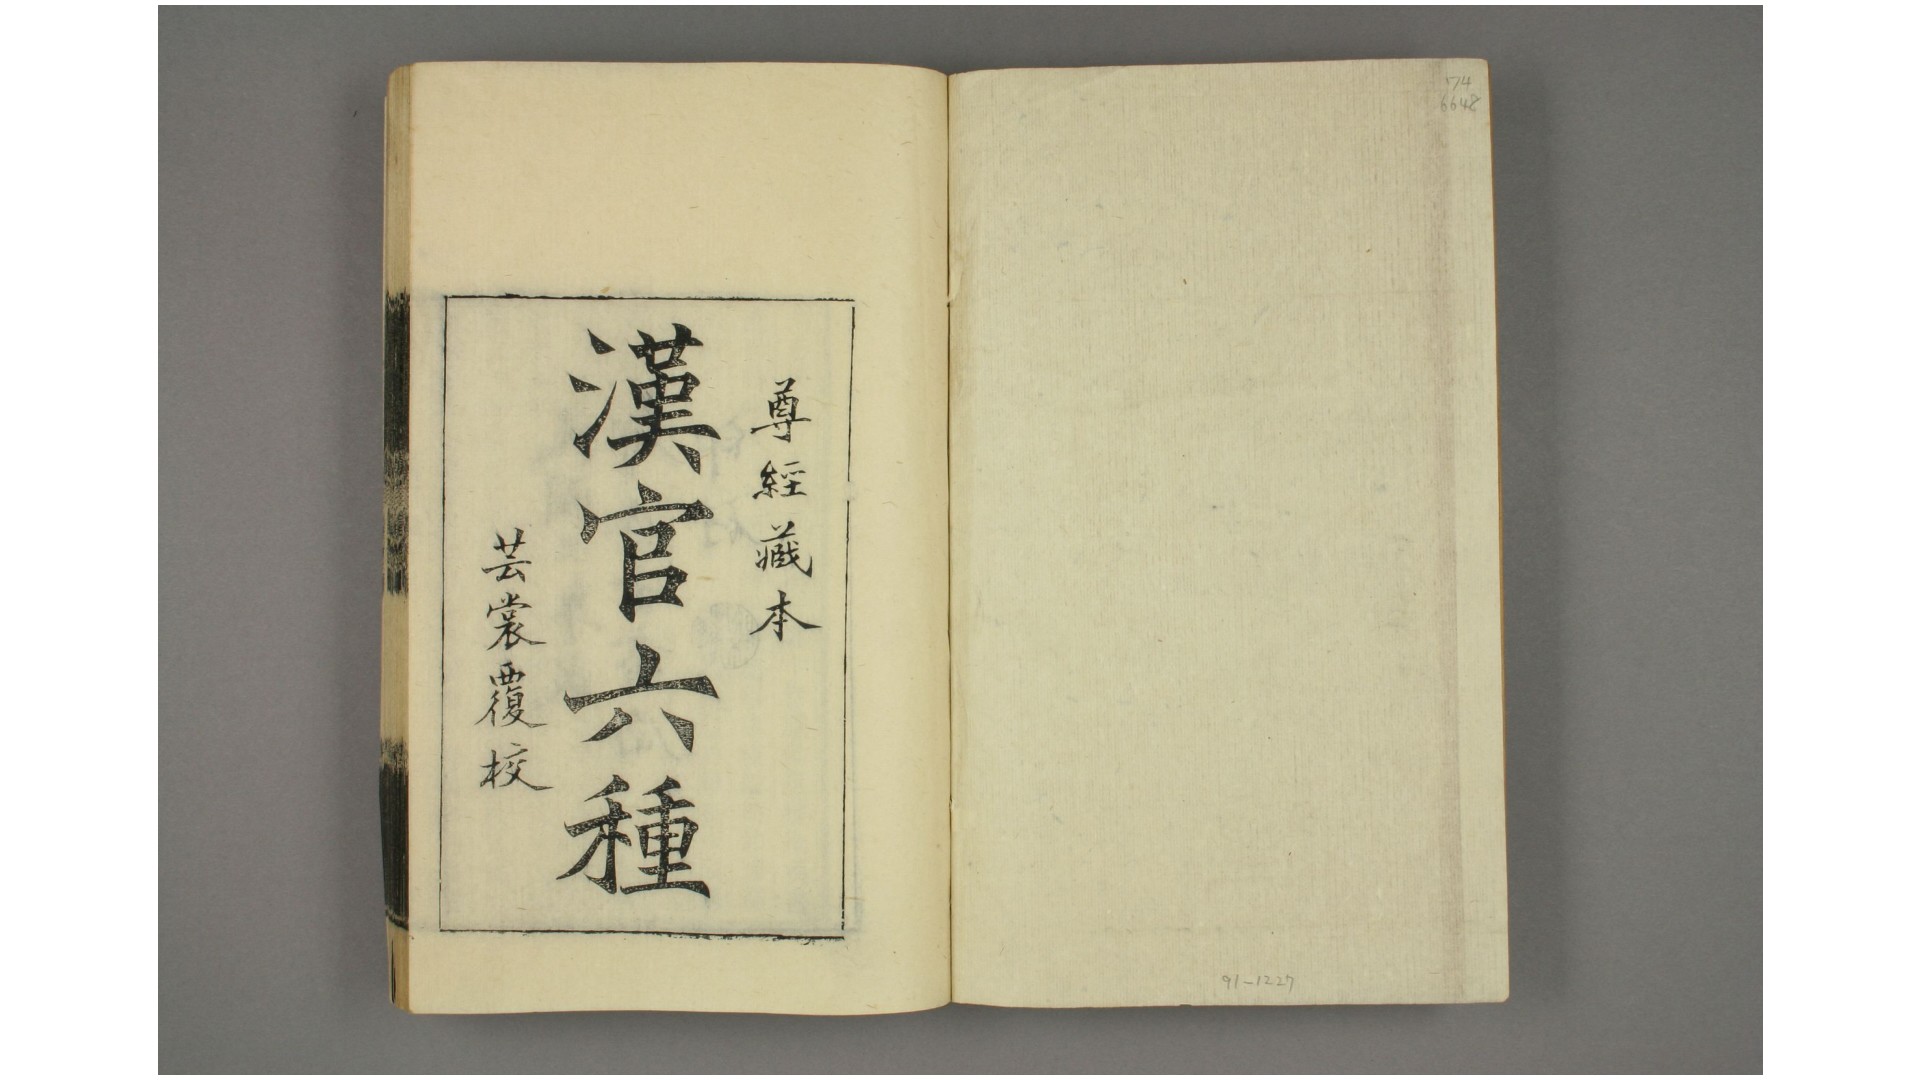 74
6648
91-1227
尊經藏本
漢官六種
芸裳覆校